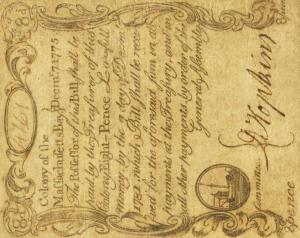 Colony of the
Massachusetts Bay Decmr. 7. 1775
The Possessor of this Bill shall be
paid by the Treasurer of this
Colony Eight Pence Lawfull
money by the day of Decm
1782 which Bill shall be recd
for the aforesaid sum in all
payments at the Treasury and in
all other payments by order of the
general Assembly
Hopkins
Committee
8d
8d